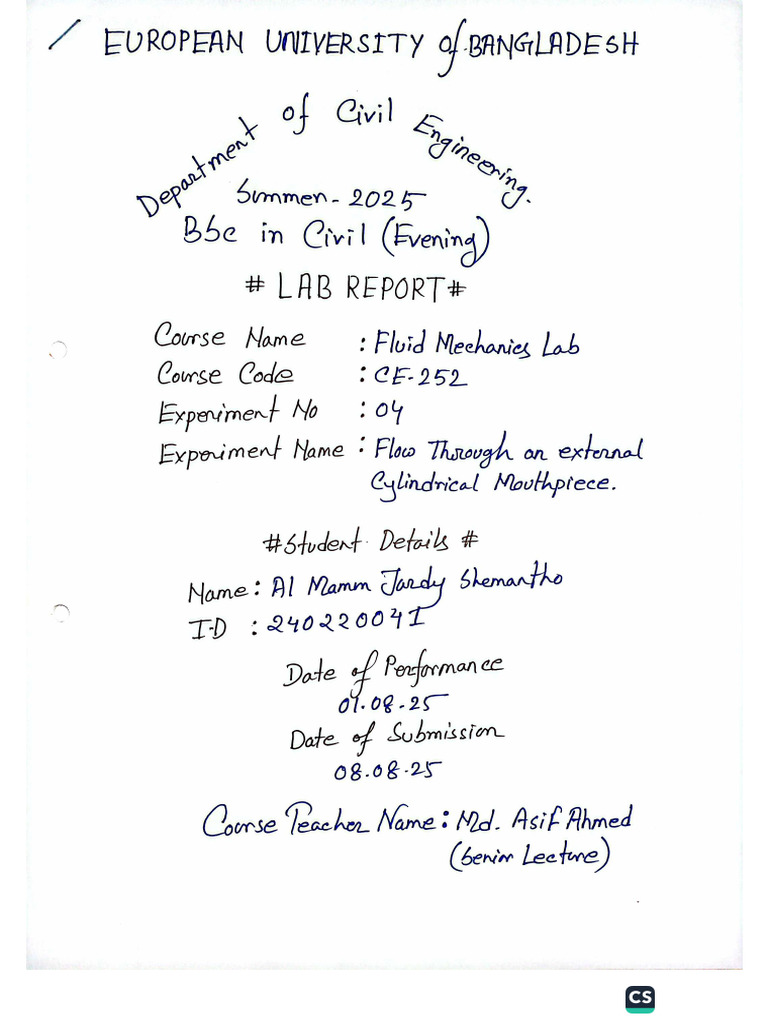 EUROPEAN UNIVERSITY of BANGLADESH
Department of Civil Engineering.
Summer-2025
BSc in Civil (Evening)
# LAB REPORT #
Course Name : Fluid Mechanics Lab
Course Code : CE-252
Experiment No : 04
Experiment Name : Flow Through an external
Cylindrical Mouthpiece.
#Student Details #
Name: Al Mamm Jardy Shemantho
I-D : 240220041
Date of Performance
01.08.25
Date of Submission
08.08.25
Course Teacher Name: Md. Asif Ahmed
(Senior Lecture)
CS